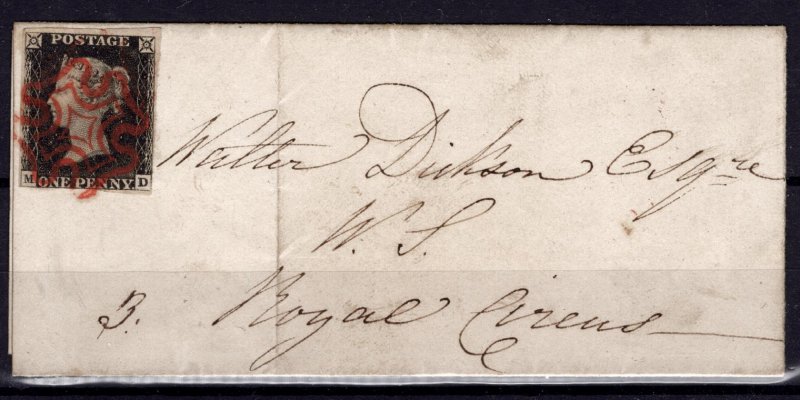 POSTAGE
M ONE PENNY D
Walter Dickson Esqre
W. S.
3. Royal Circus